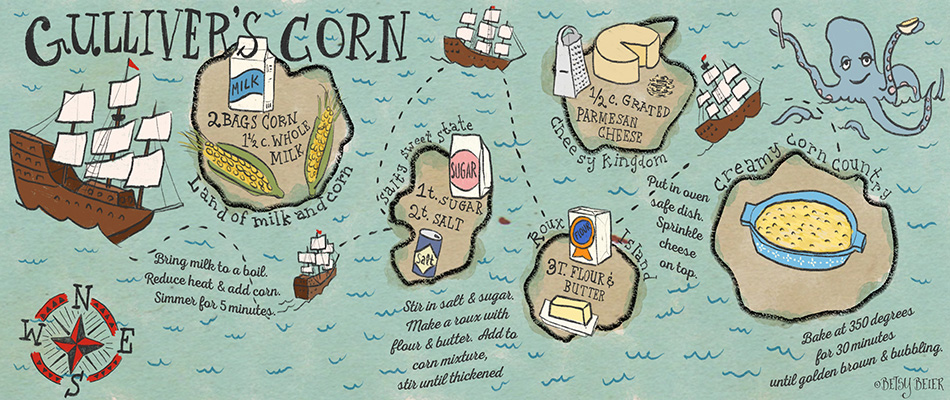 GULLIVER'S CORN
MILK
2 BAGS CORN
1½ c. WHOLE
MILK
Land of milk and corn
Bring milk to a boil.
Reduce heat & add corn.
Simmer for 5 minutes.
N
W E
S
Salty sweet state
SUGAR
1 t. SUGAR
2 t. SALT
Salt
Stir in salt & sugar.
Make a roux with
flour & butter. Add to
corn mixture,
stir until thickened
Roux Island
FLOUR
3 T. FLOUR &
BUTTER
1/2 c. GRATED
PARMESAN
CHEESE
Cheesy Kingdom
Put in oven
safe dish.
Sprinkle
cheese
on top.
Creamy corn country
Bake at 350 degrees
for 30 minutes
until golden brown & bubbling.
©BETSY BEIER